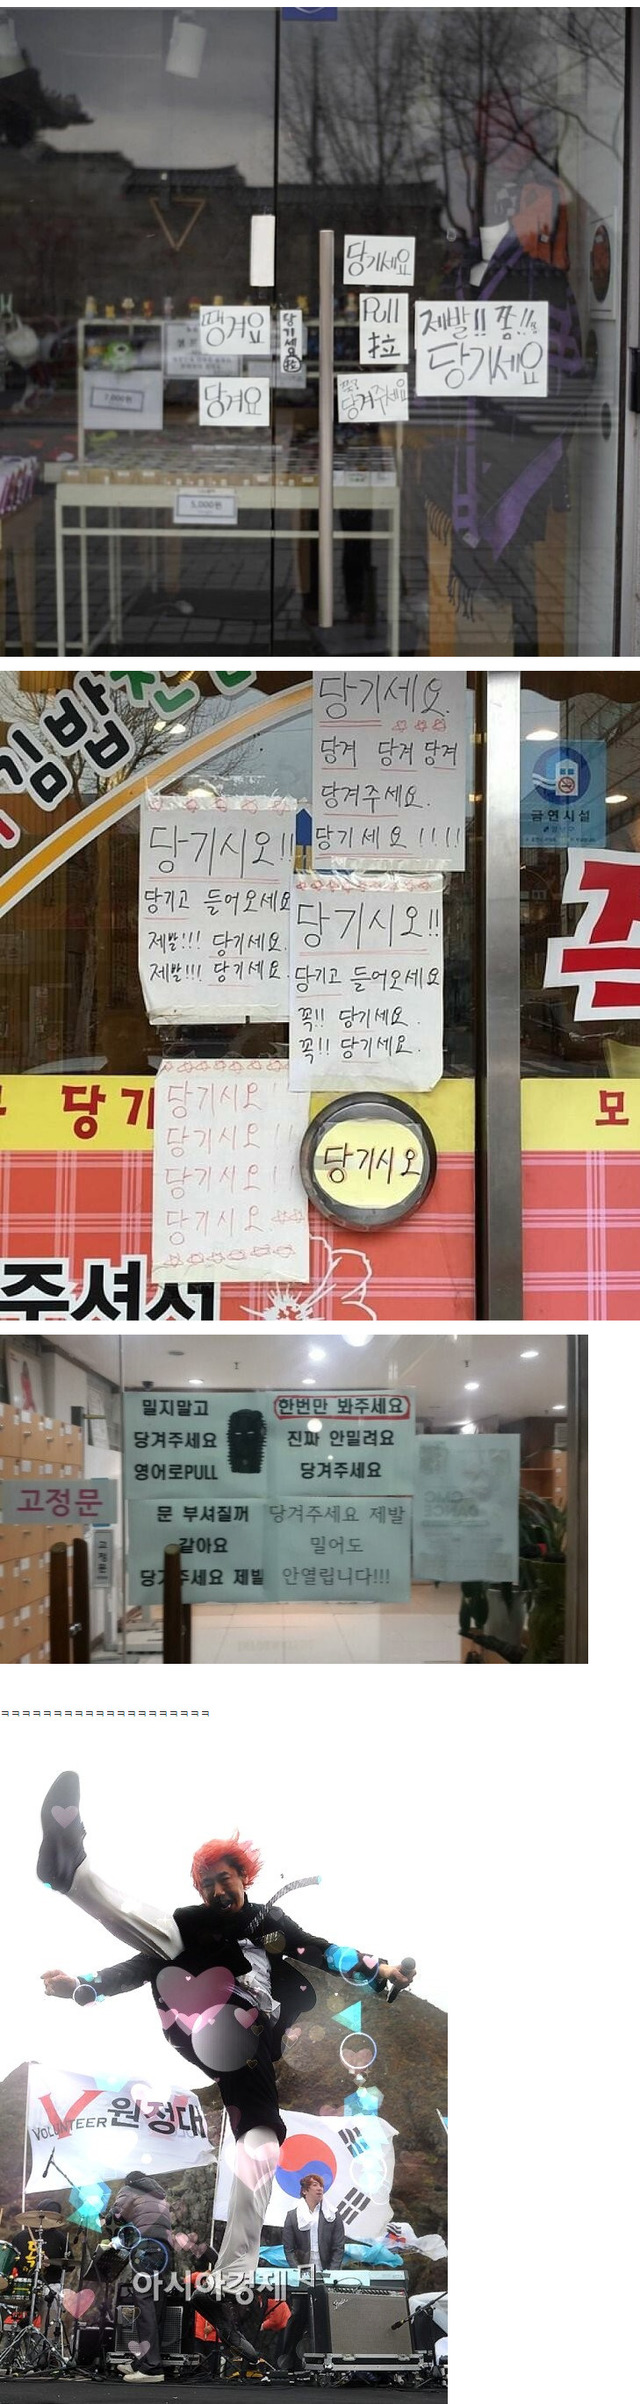 당기세요
땅겨요
당기세요
Pull
拉
제발!! 쫌!!
당기세요
당겨요
당겨주세요
7,000원
5,000원
김밥천
당기세요.
당겨 당겨 당겨
당겨주세요.
당기세요!!!!
금연시설
당기시오!!
당기고 들어오세요
제발!!! 당기세요.
제발!!! 당기세요.
당기시오!!
당기고 들어오세요
꼭!! 당기세요.
꼭!! 당기세요.
당기시오!!
당기시오!!
당기시오!!
당기시오
당기시오
당기
모
주셔서
밀지말고
당겨주세요
영어로PULL
한번만 봐주세요
진짜 안밀려요
당겨주세요
고정문
고정문
문 부셔질꺼
같아요
당겨주세요 제발
당겨주세요 제발
밀어도
안열립니다!!!
ㅋㅋㅋㅋㅋㅋㅋㅋㅋㅋㅋㅋㅋㅋㅋㅋㅋㅋㅋㅋ
V
VOLUNTEER 원정대
아시아경제